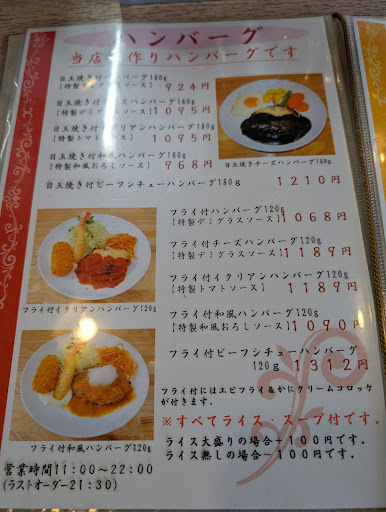 ハンバーグ
当店手作りハンバーグです
目玉焼き付ハンバーグ180g
【特製デミグラスソース】 924円
目玉焼き付チーズハンバーグ180g
【特製デミグラスソース】 1095円
目玉焼き付イタリアンハンバーグ180g
【特製トマトソース】 1095円
目玉焼き付和風ハンバーグ180g
【特製和風おろしソース】 968円
目玉焼きチーズハンバーグ180g
目玉焼き付ビーフシチューハンバーグ180g 1210円
フライ付ハンバーグ120g
【特製デミグラスソース】 1068円
フライ付チーズハンバーグ120g
【特製デミグラスソース】 1189円
フライ付イタリアンハンバーグ120g
【特製トマトソース】 1189円
フライ付イタリアンハンバーグ120g
フライ付和風ハンバーグ120g
【特製和風おろしソース】 1090円
フライ付ビーフシチューハンバーグ
120g 1312円
フライ付にはエビフライ&かにクリームコロッケ
が付きます。
※すべてライス、スープ付です。
ライス大盛りの場合+100円です。
ライス無しの場合-100円です。
フライ付和風ハンバーグ120g
営業時間11:00~22:00
(ラストオーダー21:30)